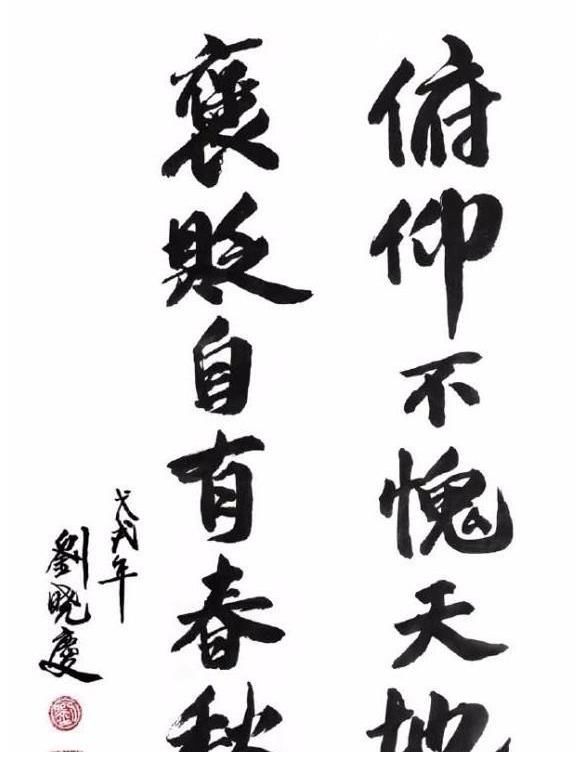 俯仰不愧天地
褒贬自有春秋
戊戌年
劉晓慶